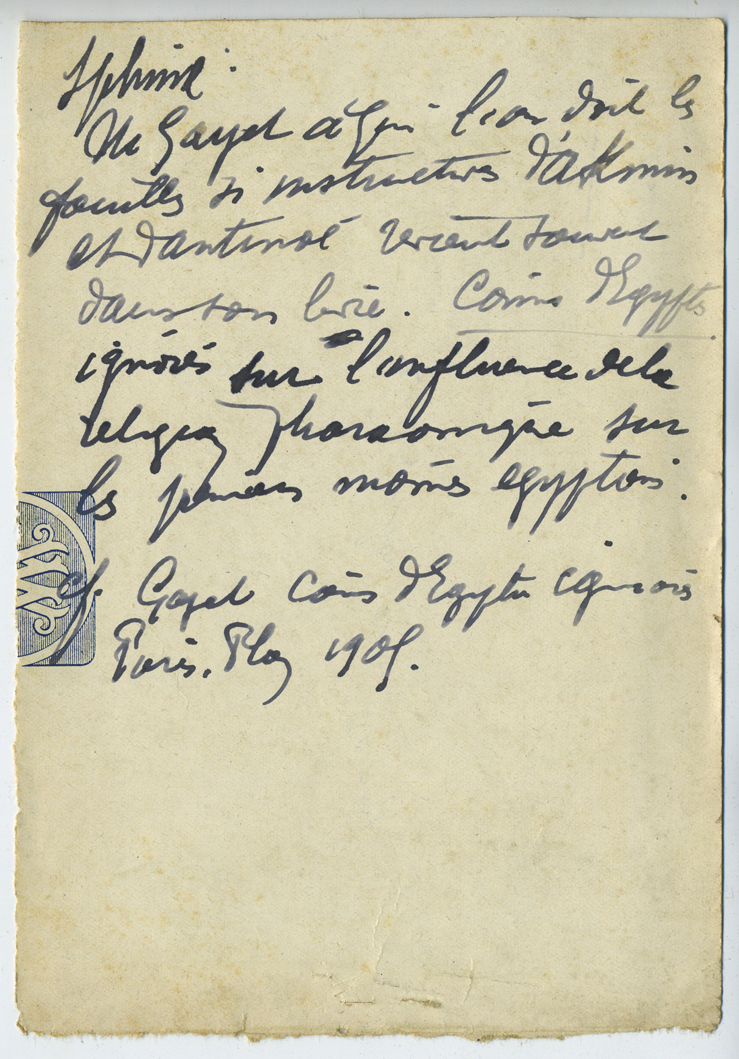 Sphinx :
M Gayet à qui l'on doit les
fouilles si instructives d'Akmin
et d'antinoé revient souvent
dans son livre. Coins d'Egypte
ignorés sur l'influence de la
religion pharaonique sur
les premiers moines egyptiens.
cf. Gayet Coins d'Egypte ignorés
Paris. Plon 1905.